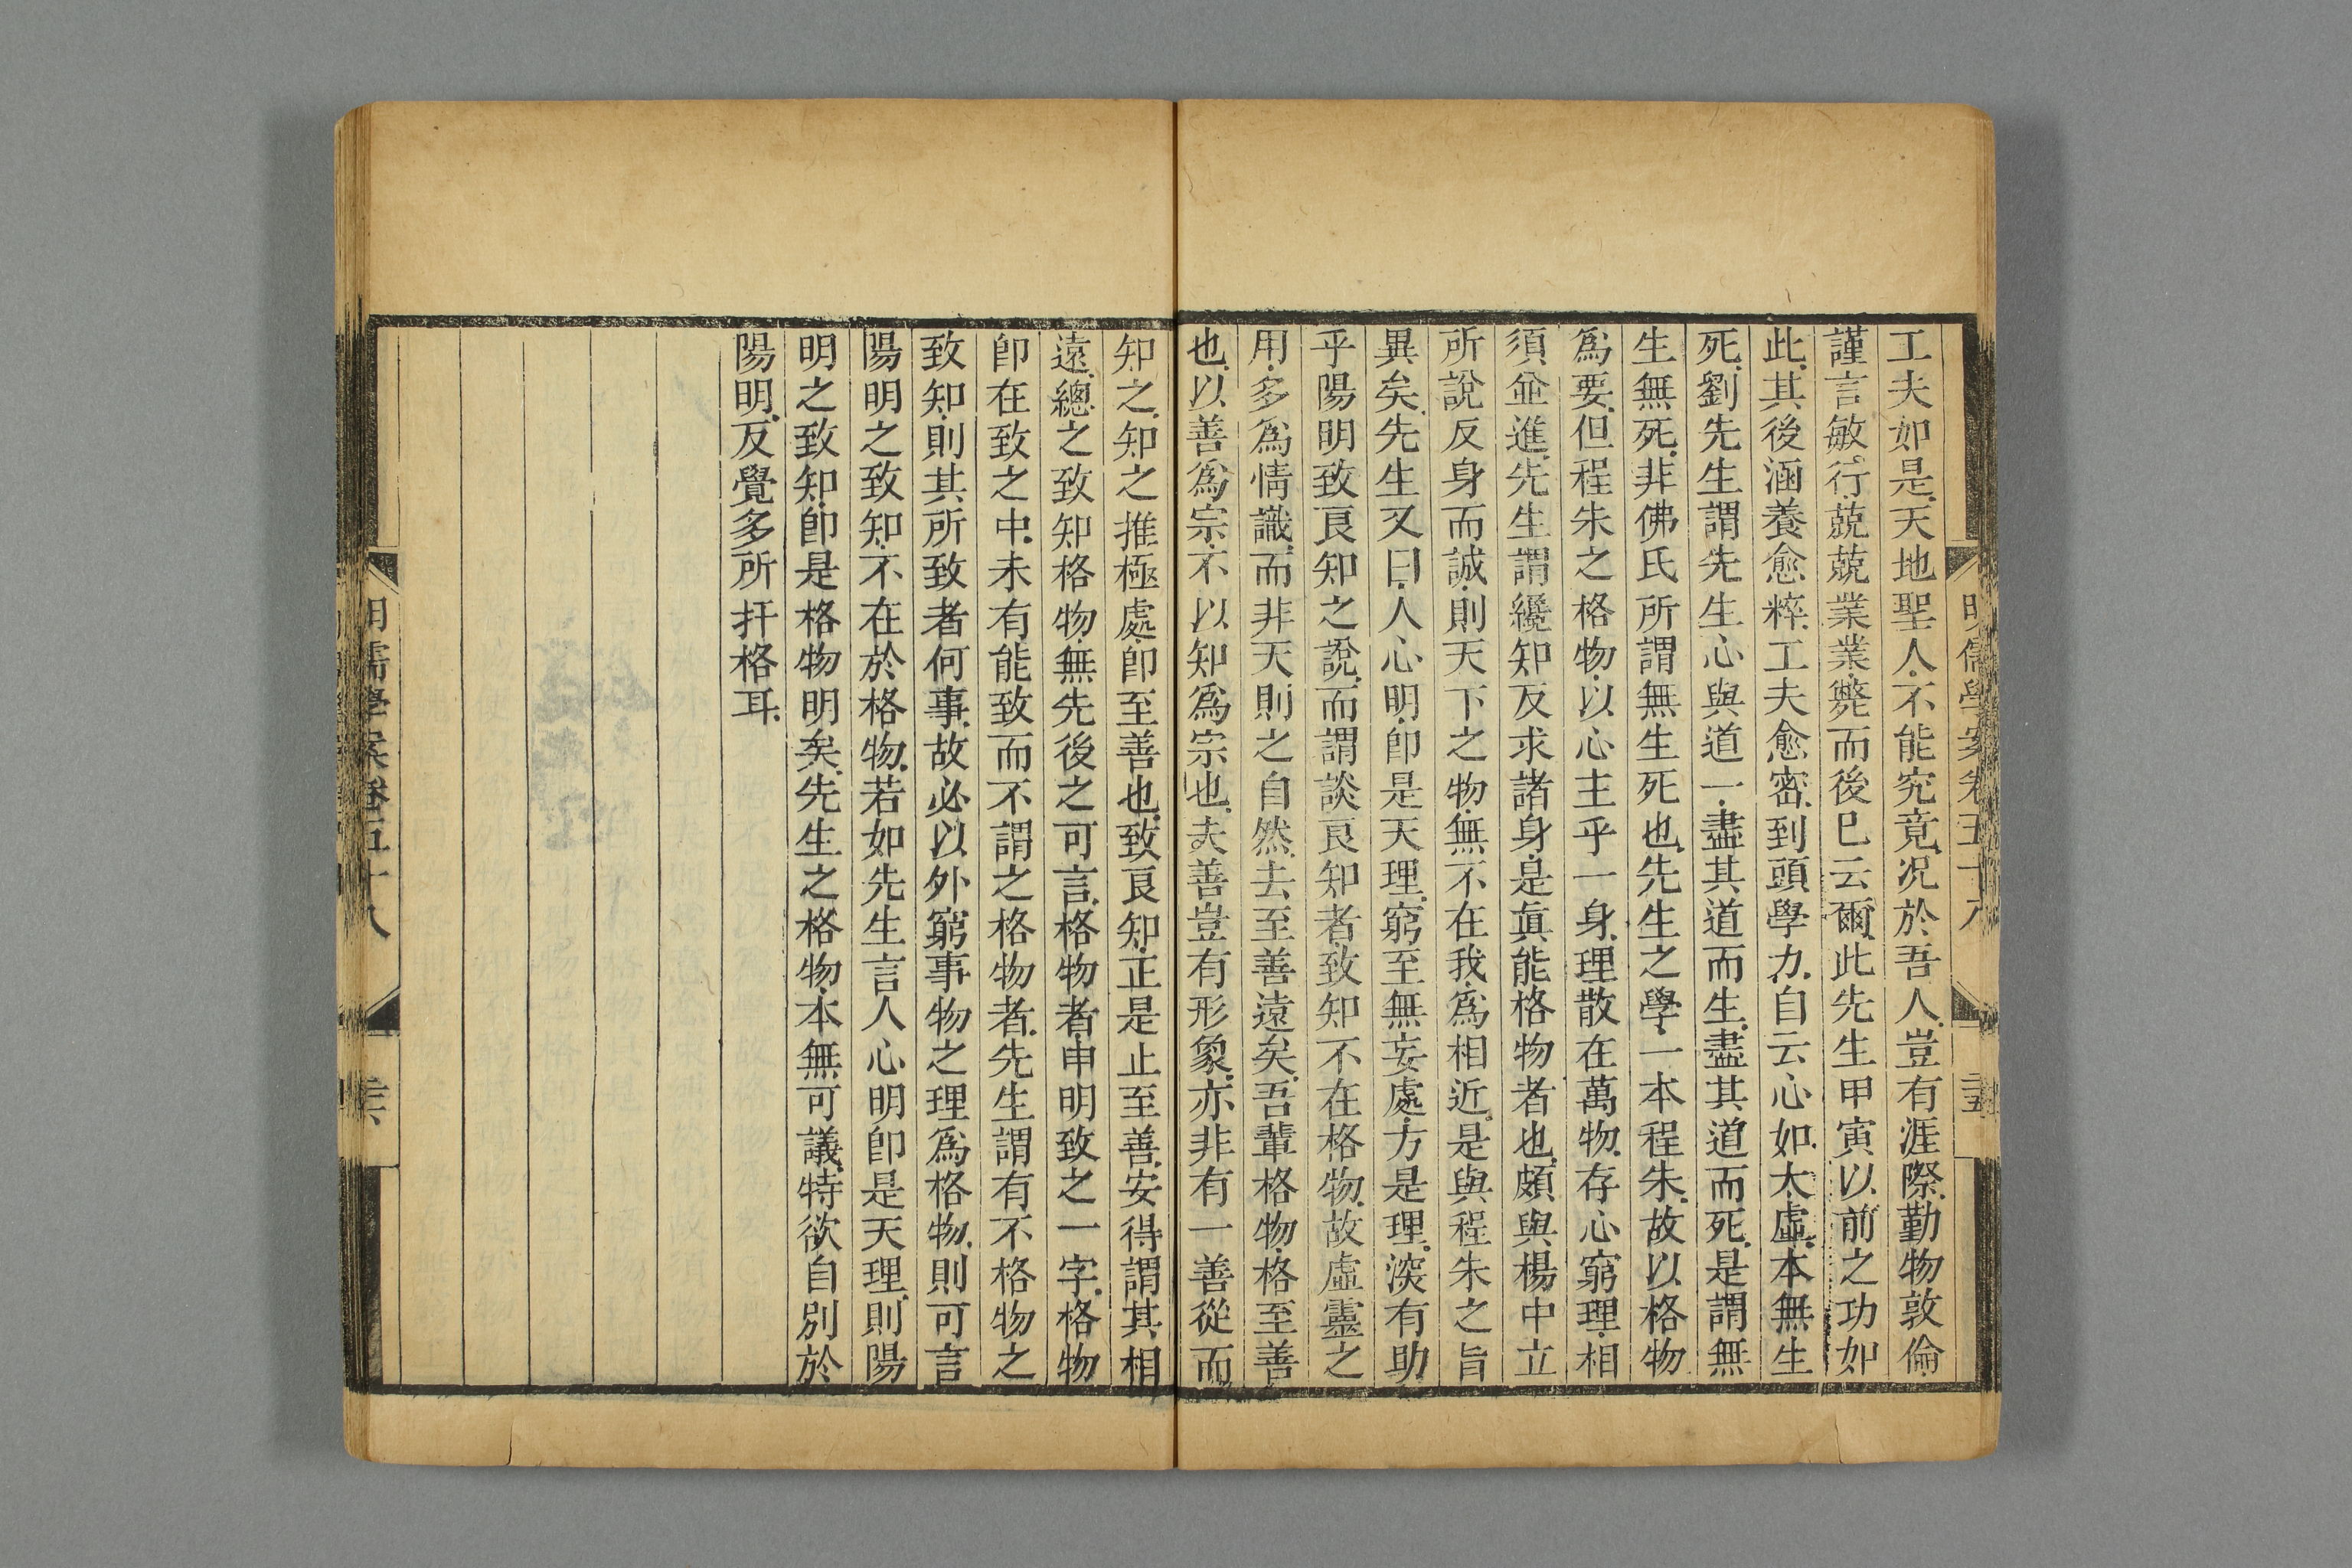 明儒學案卷五十八
工夫如是.天地聖人.不能究竟.况於吾人.豈有涯際.勤物敦倫
謹言敏行.兢兢業業.斃而後已云爾.此先生甲寅以前之功如
此.其後涵養愈粹.工夫愈密.到頭學力.自云心如太虛.本無生
死.劉先生謂先生心與道一.盡其道而生.盡其道而死.是謂無
生無死.非佛氏所謂無生死也.先生之學.一本程朱.故以格物
爲要.但程朱之格物.以心主乎一身.理散在萬物.存心窮理.相
須並進.先生謂纔知反求諸身.是眞能格物者也.頗與楊中立
所說反身而誠.則天下之物.無不在我.爲相近.是與程朱之旨
異矣.先生又曰.人心明.卽是天理.窮至無妄處.方是理.深有助
乎陽明致良知之說.而謂談良知者.致知不在格物.故虛靈之
用.多爲情識.而非天則之自然.去至善遠矣.吾輩格物.格至善
也.以善爲宗.不以知爲宗也.夫善豈有形象.亦非有一善從而
知之.知之推極處.卽至善也.致良知.正是止至善.安得謂其相
遠.總之致知格物.無先後之可言.格物者.申明致之一字.格物
卽在致之中.未有能致而不謂之格物者.先生謂有不格物之
致知.則其所致者何事.故必以外窮事物之理爲格物.則可言
陽明之致知.不在於格物.若如先生言人心明卽是天理.則陽
明之致知.卽是格物明矣.先生之格物.本無可議.特欲自別於
陽明.反覺多所扞格耳.
明儒學案卷五十八